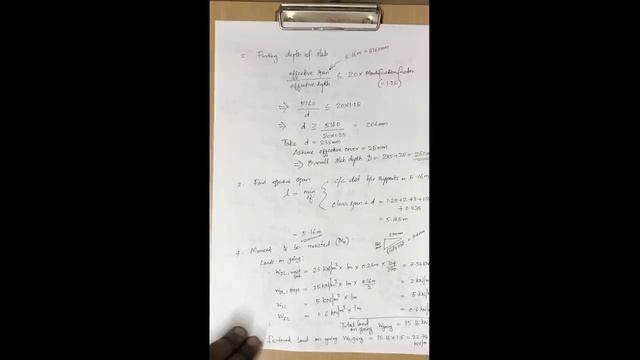 Finding depth of slab
5.16m = 5160mm
effective span / effective depth ≤ 20 × Modification factor
(= 1.25)
⇒ 5160 / d ≤ 20×1.25
⇒ d ≥ 5160 / 20×1.25 = 206mm
Take d = 235mm
Assume effective cover = 25mm
⇒ Overall slab depth D = 235+25 = 260mm
3. Find effective span
l = min of { c/c dist b/w supports = 5.16m
clear span + d
+ 0.235
= 5.185m
= 5.16m
4. Moment to be resisted (Mu)
Loads on going:
= 25 kN/m³ × 1m × 0.26m ×
= 25 kN/m³ × 1m × 0.16m / 2 = 2 kN/m
W LL = 5 kN/m² × 1m = 5 kN/m
W FL = 0.6 kN/m² × 1m = 0.6 kN/m
Total load on going W going
Factored load on going